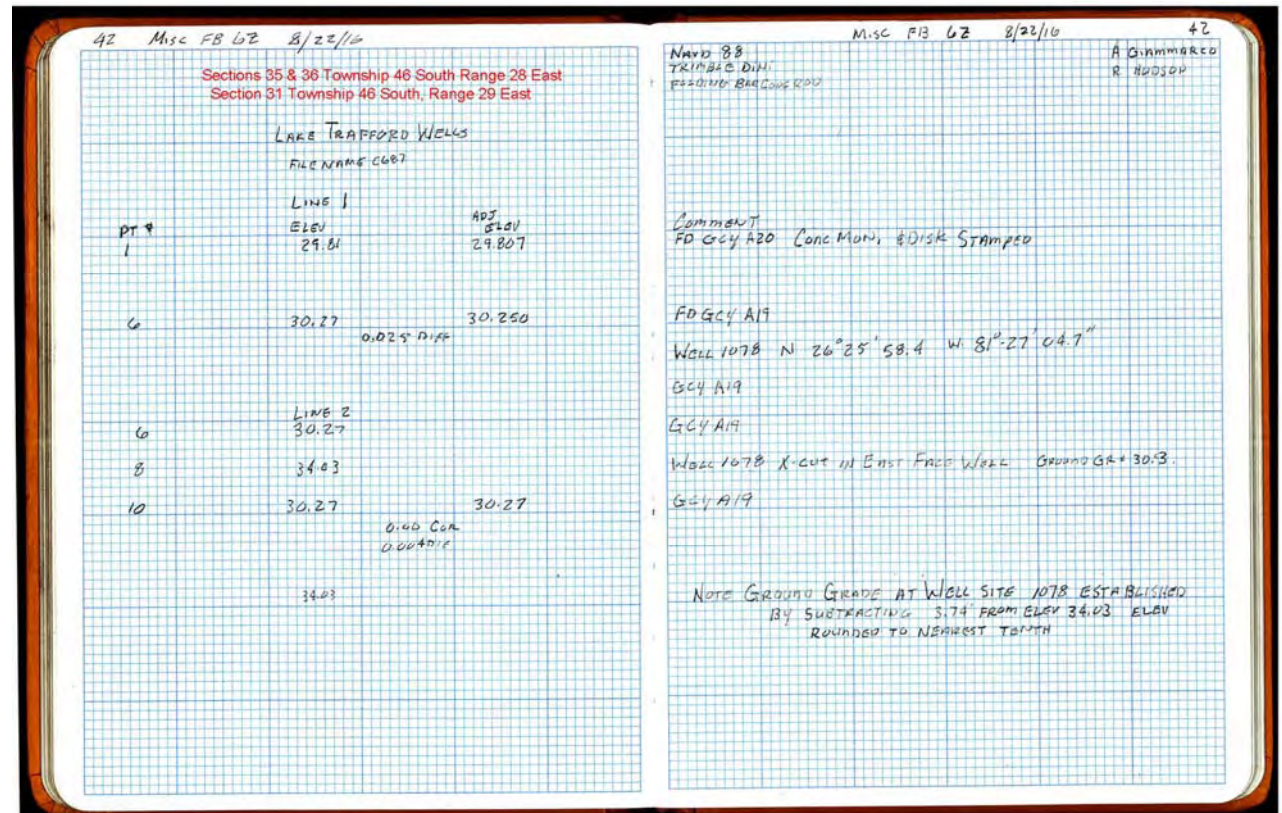 42 Misc FB 62 8/22/16
Sections 35 & 36 Township 46 South Range 28 East
Section 31 Township 46 South, Range 29 East
LAKE TRAFFORD WELLS
FILE NAME C687
LINE 1
PT # ELEV ADJ ELEV
1 29.81 29.807
6 30.27 30.250
0.025 DIFF
LINE 2
6 30.27
8 34.03
10 30.27 30.27
0.00 COR
0.004 DIF
34.03
MISC FB 62 8/22/16 42
NAVD 88 A GIAMMARCO
TRIMBLE DINI R HUDSON
FOLDING BAR CODE ROD
COMMENT
FD GCY A20 CONC MON. & DISK STAMPED
FD GCY A19
WELL 1078 N 26°25'58.4 W 81°-27'04.7"
GCY A19
GCY A19
WELL 1078 X-CUT IN EAST FACE WELL GROUND GR = 30.3.
GCY A19
NOTE GROUND GRADE AT WELL SITE 1078 ESTABLISHED
BY SUBTRACTING 3.74' FROM ELEV 34.03 ELEV
ROUNDED TO NEAREST TENTH